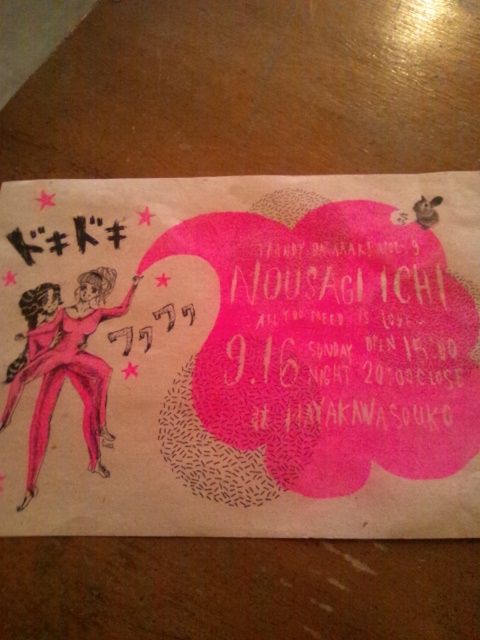 ドキドキ
ワクワク
NOUSAGI ICHI
ALL YOU NEED IS LOVE~
9.16 SUNDAY NIGHT OPEN 15:00
20:00 CLOSE
at HAYAKAWASOUKO